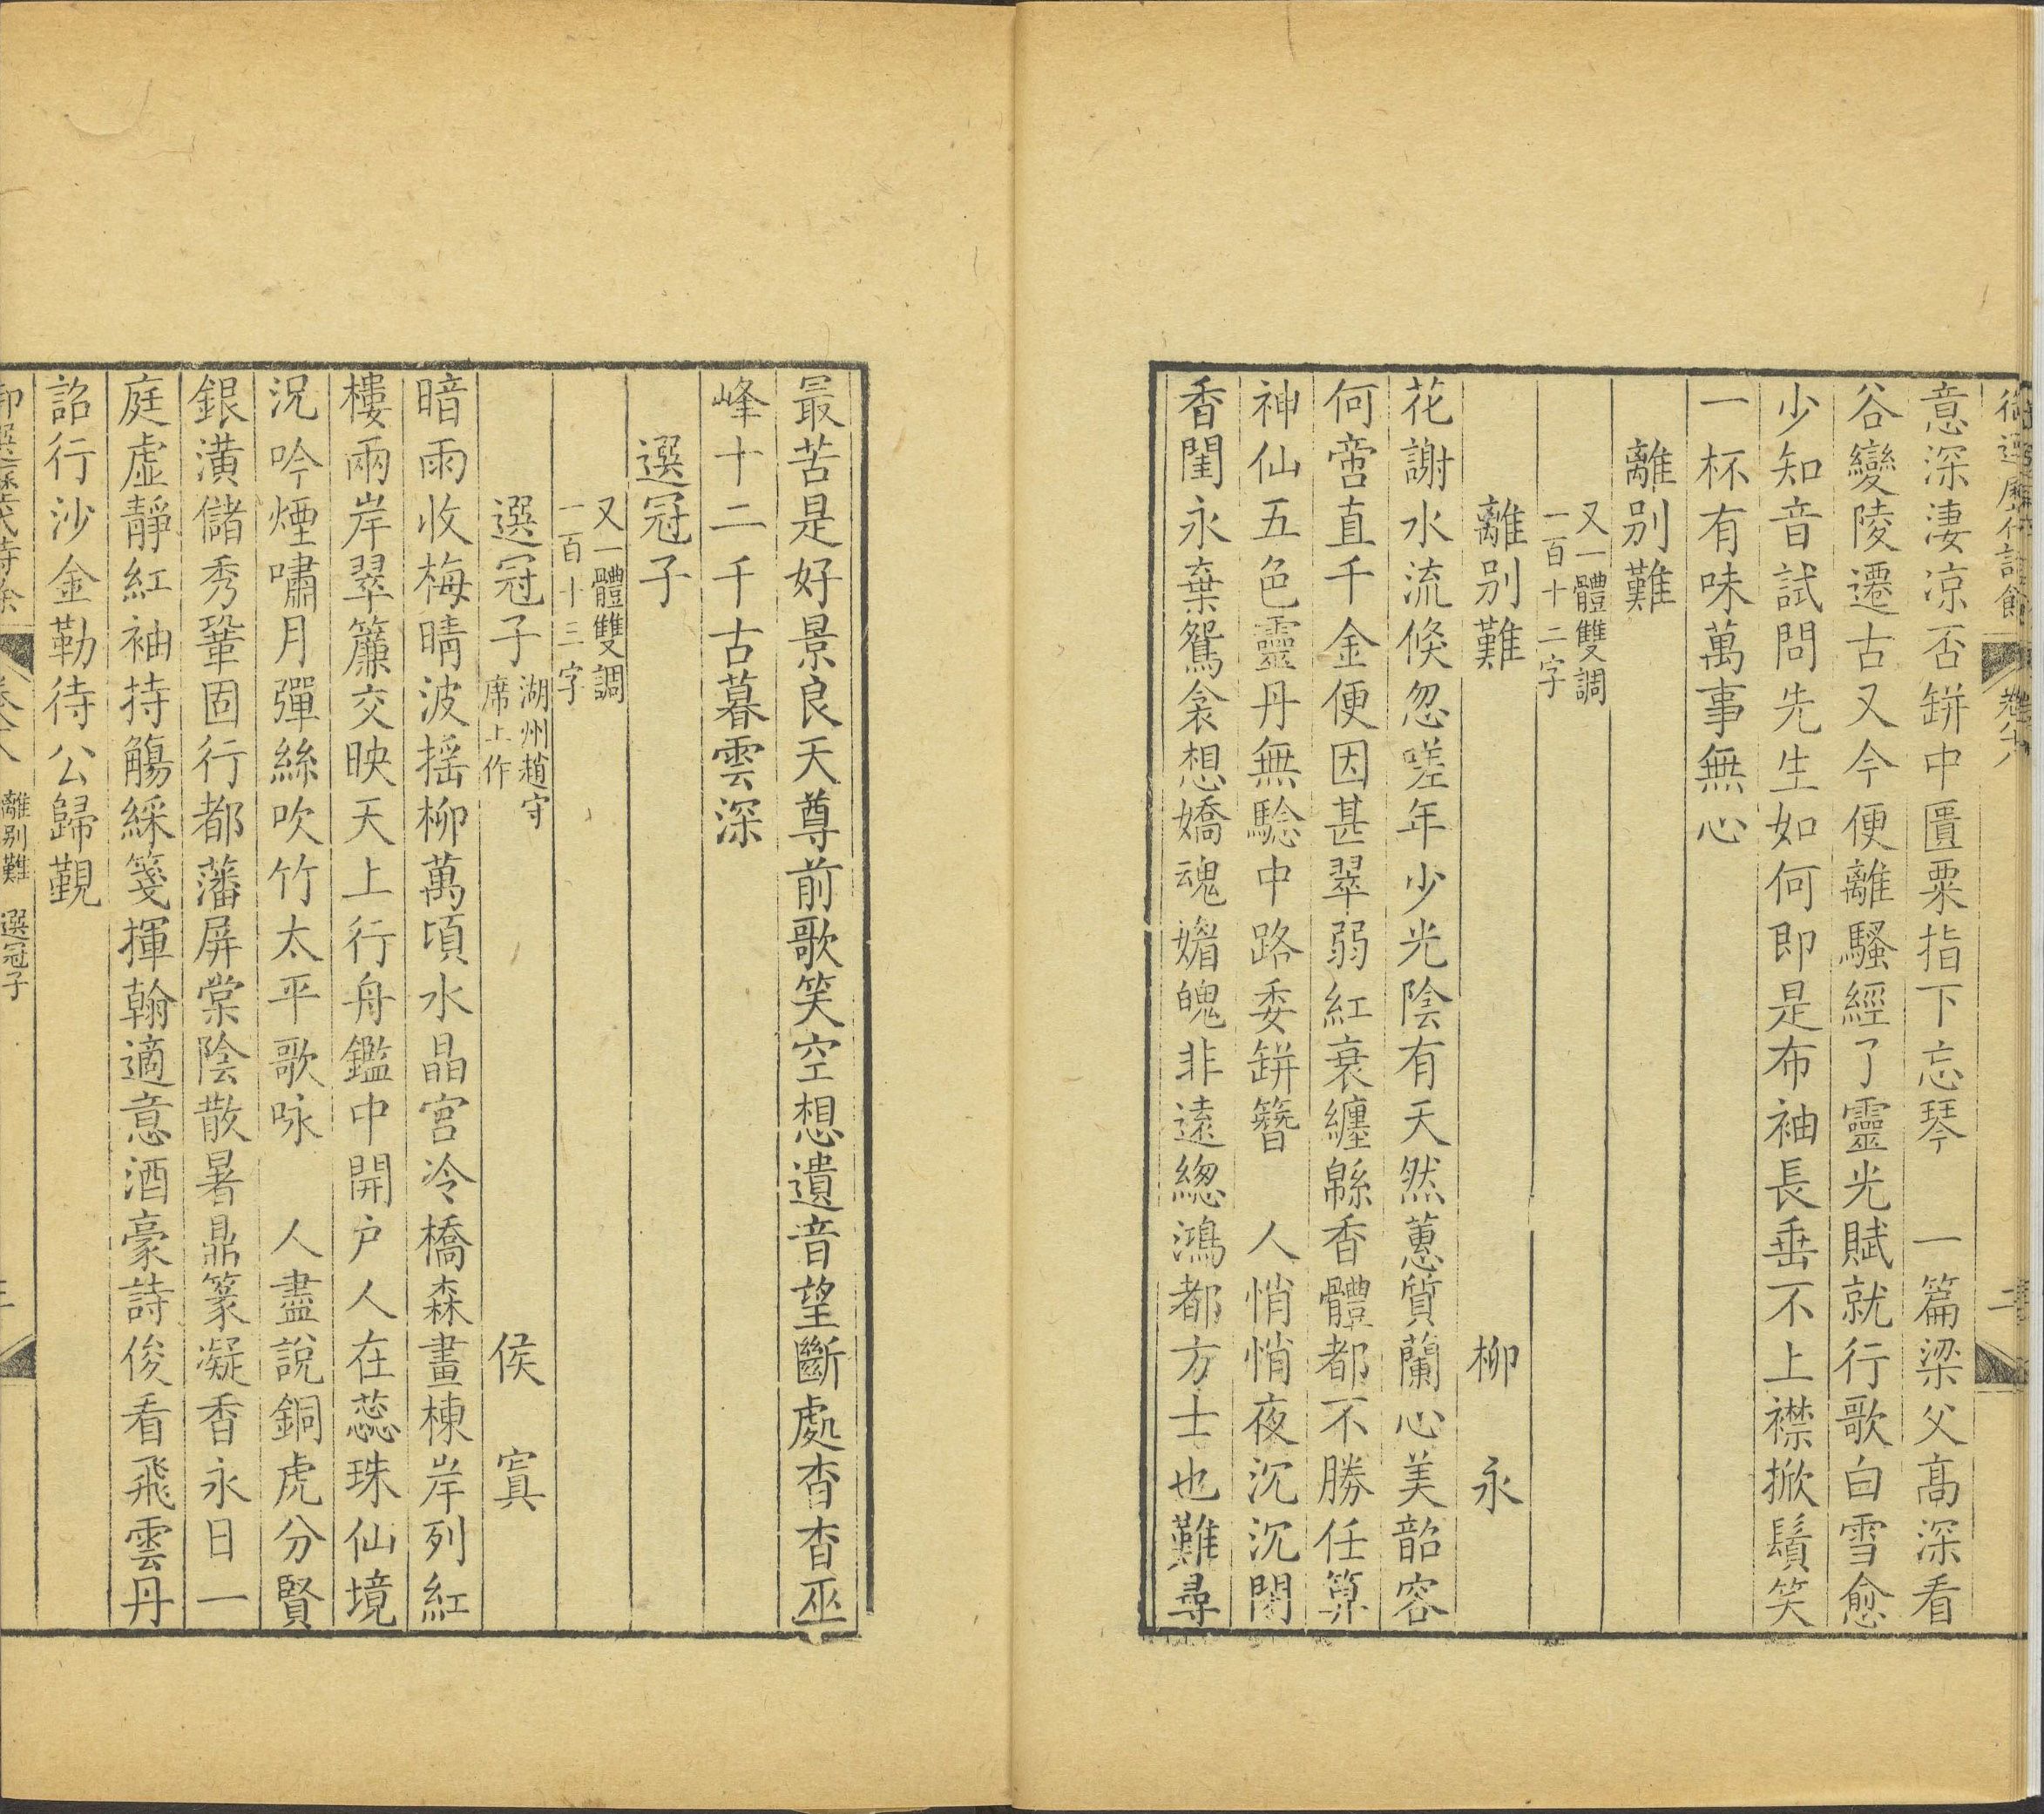 御選歷代詩餘 卷八十八 二
意深淒凉否缾中匱粟指下忘琴　一篇梁父高深看
谷變陵遷古又今便離騷經了靈光賦就行歌白雪愈
少知音試問先生如何即是布袖長垂不上襟掀鬚笑
一杯有味萬事無心
離别難
又一體雙調
一百十二字
離别難　柳永
花謝水流倏忽嗟年少光陰有天然蕙質蘭心美韶容
何啻直千金便因甚翠弱紅衰纏緜香體都不勝任算
神仙五色靈丹無驗中路委缾簪　人悄悄夜沉沉閉
香閨永棄鴛衾想嬌魂媚魄非遠緫鴻都方士也難尋
最苦是好景良天尊前歌笑空想遺音望斷處杳杳巫
峰十二千古暮雲深
選冠子
又一體雙調
一百十三字
選冠子 湖州趙守
席上作　侯寘
暗雨收梅晴波揺柳萬頃水晶宮冷橋森畫棟岸列紅
樓兩岸翠簾交映天上行舟鑑中開户人在蕊珠仙境
況吟煙嘯月彈絲吹竹太平歌咏　人盡說銅虎分賢
銀潢儲秀鞏固行都藩屏棠陰散暑鼎篆凝香永日一
庭虛靜紅袖持觴綵箋揮翰適意酒豪詩俊看飛雲丹
詔行沙金勒待公歸覲
離别難　選冠子